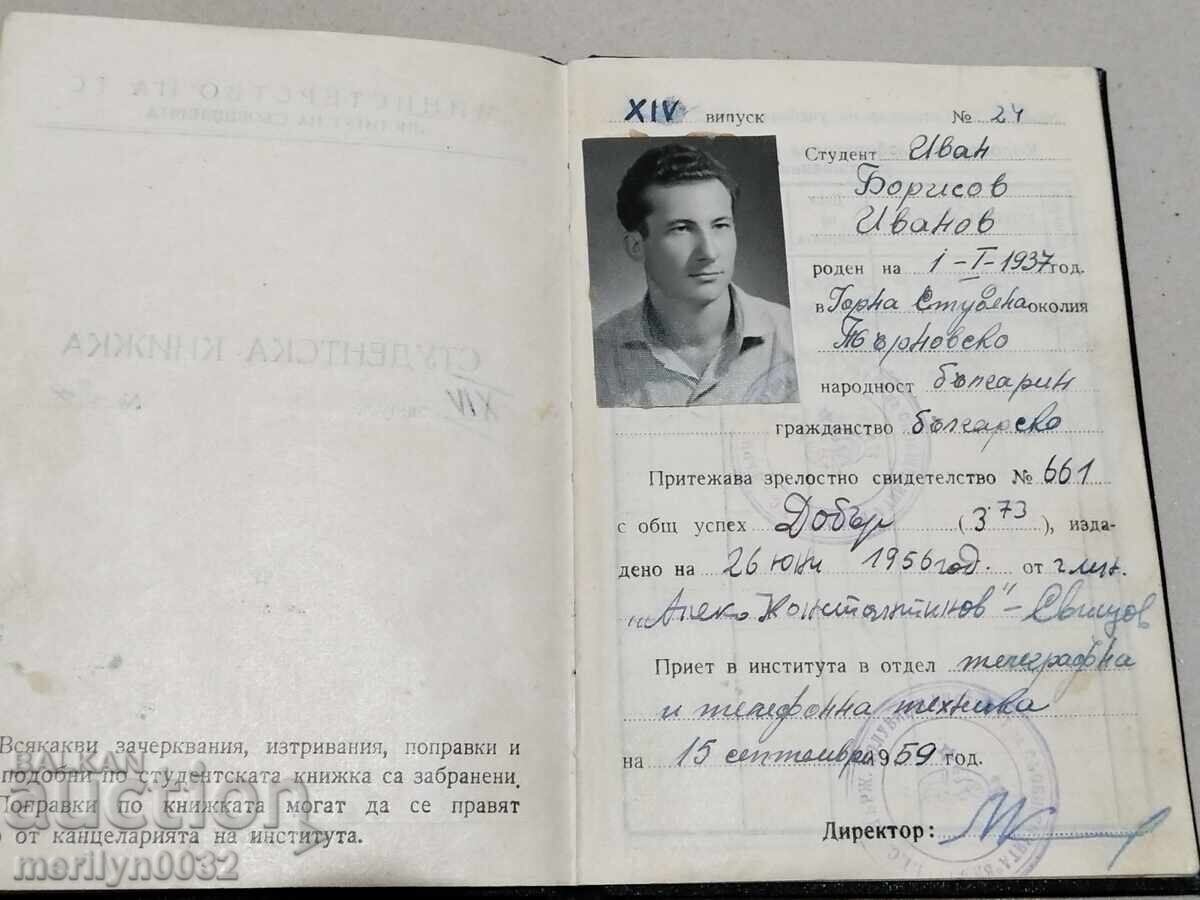 СТУДЕНТСКА КНИЖКА
XIV
Всякакви зачерквания, изтривания, поправки и
подобни по студентската книжка са забранени.
Поправки по книжката могат да се правят
от канцеларията на института.
BALKAN
auction
merilyn0032
XIV випуск № 24
Студент Иван
Борисов
Иванов
роден на 1-I-1937 год.
в Горна Студена околия
Търновско
народност българин
гражданство българско
Притежава зрелостно свидетелство № 661
с общ успех Добър (3.73), изда-
дено на 26 юни 1956 год. от гимн.
"Алеко Константинов" - Свищов
Приет в института в отдел телеграфна
и телефонна техника
на 15 септември 1959 год.
Директор: